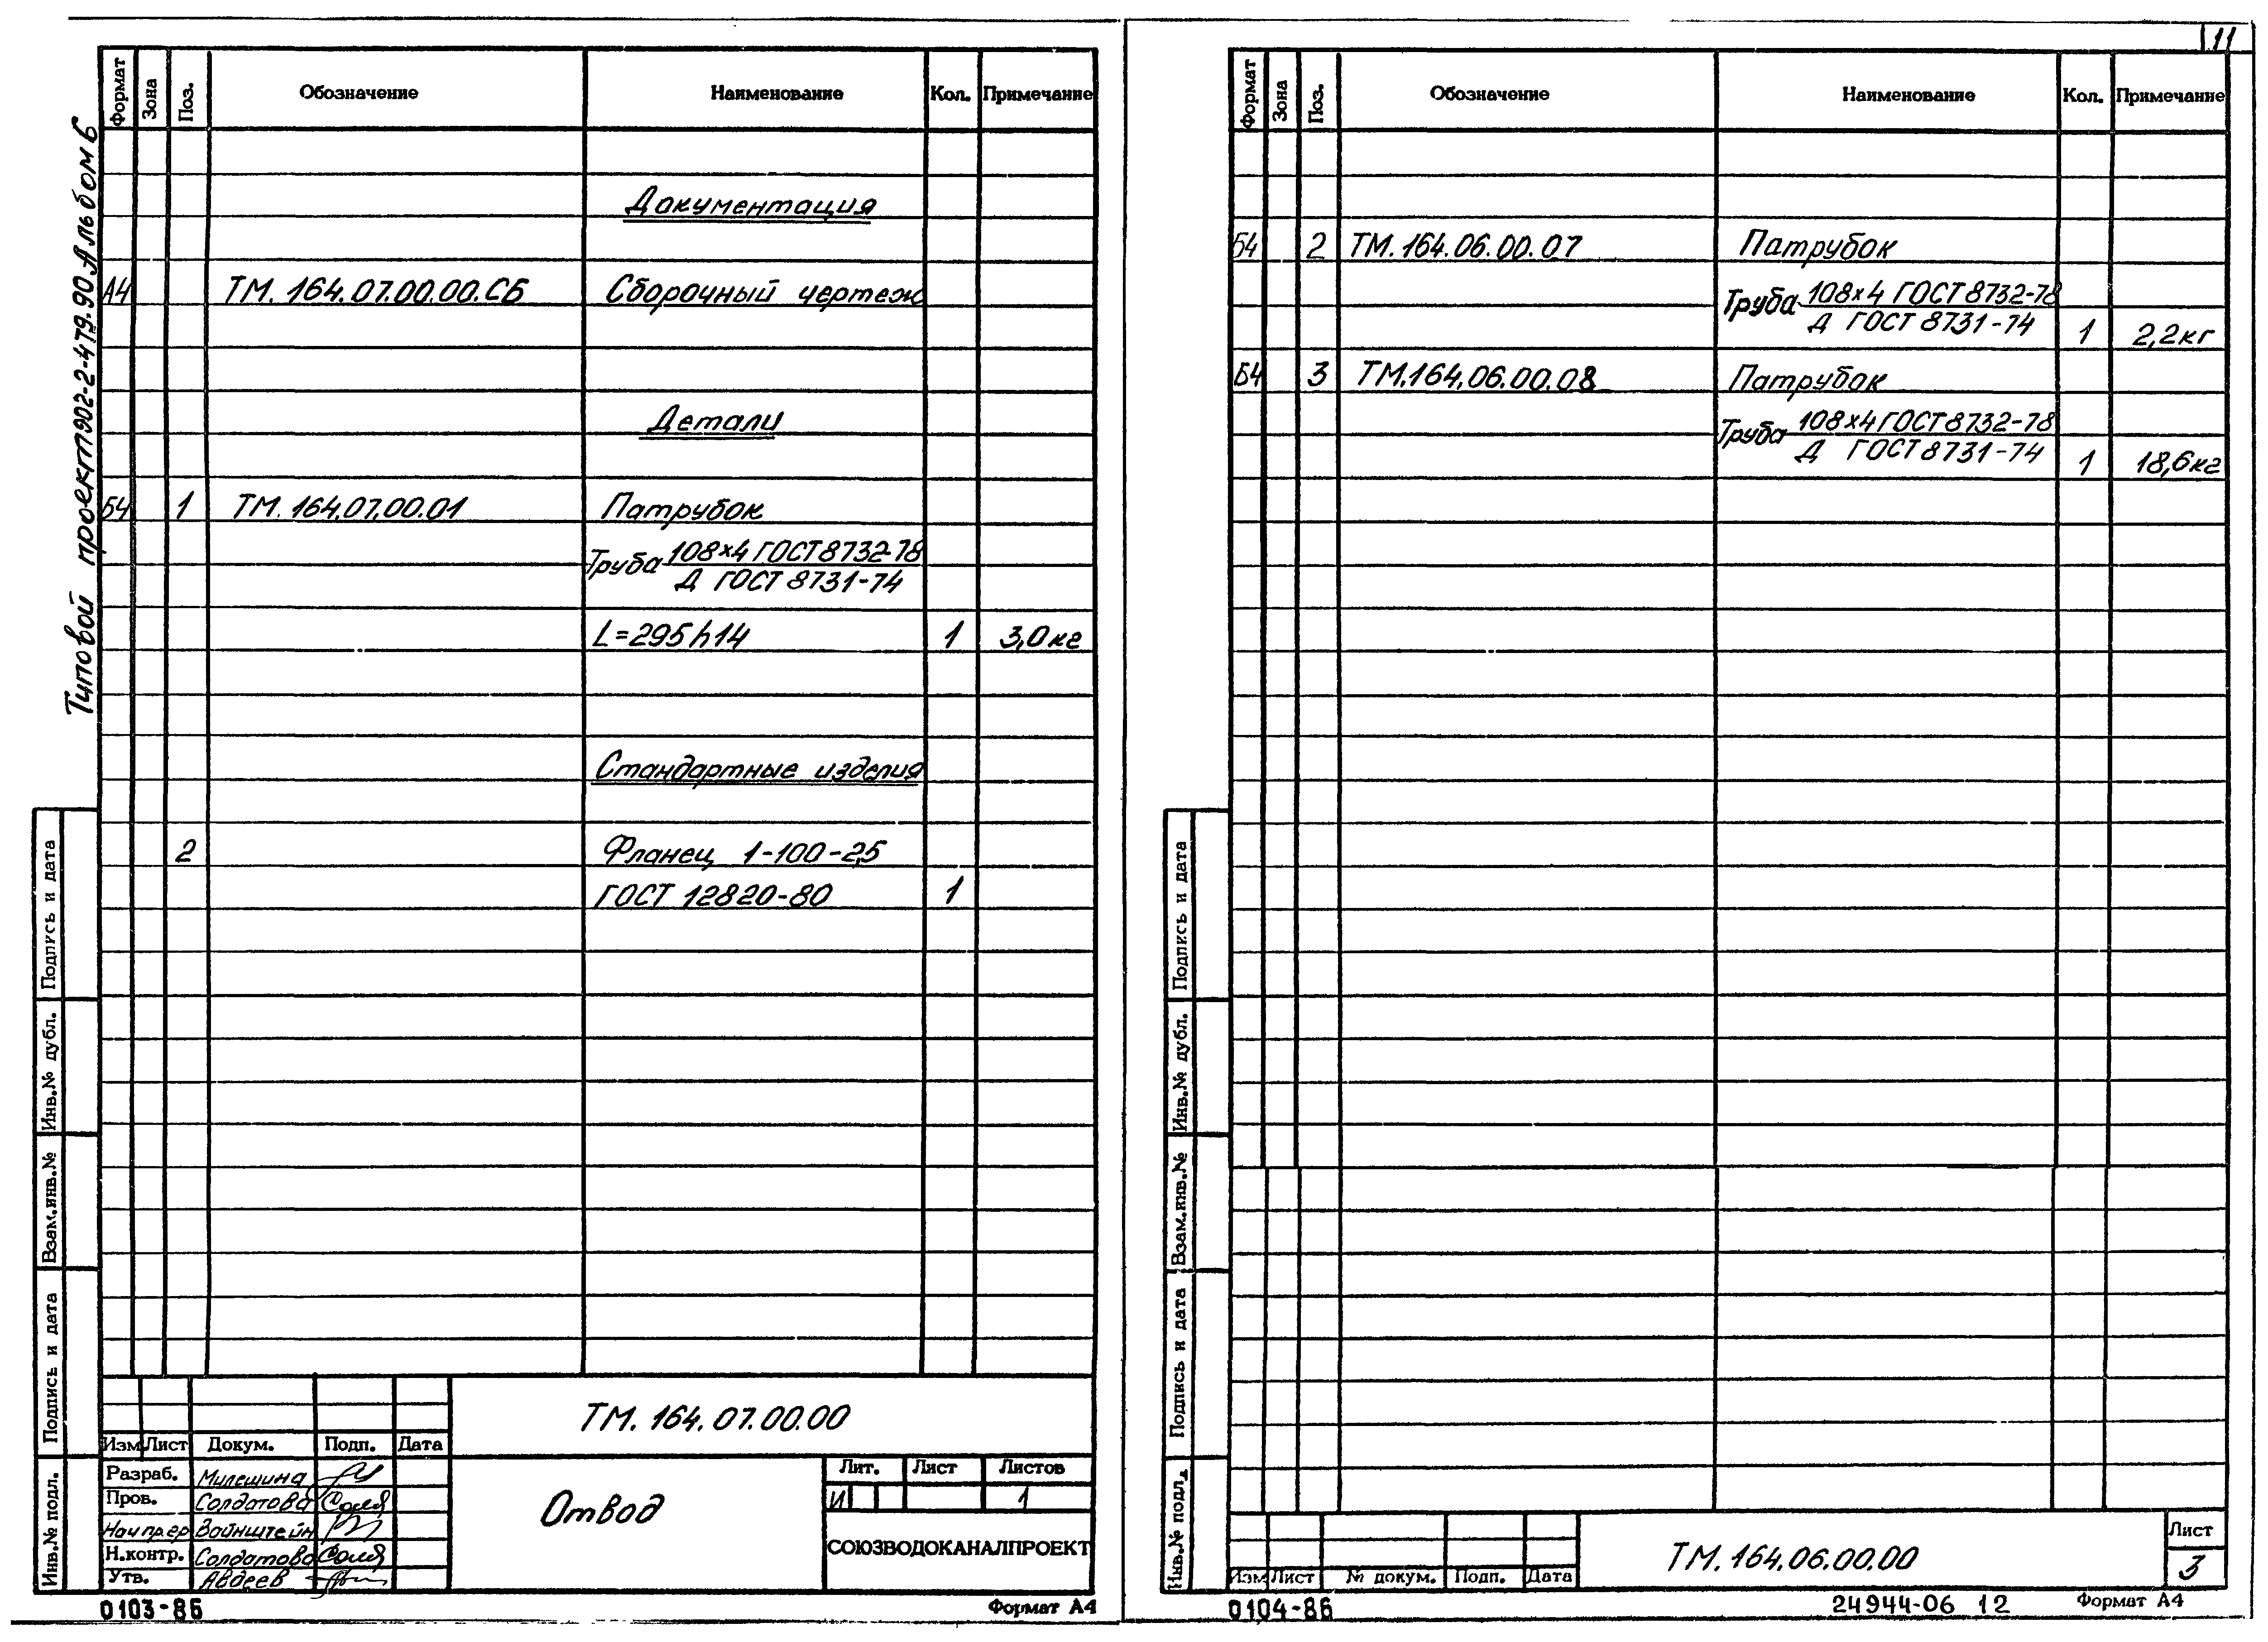 Типовой проект 902-2-479.90 Альбом 6
Формат Зона Поз. Обозначение Наименование Кол. Примечание
Документация
А4 ТМ.164.07.00.00.СБ Сборочный чертеж
Детали
Б4 1 ТМ.164.07.00.01 Патрубок
Труба 108×4 ГОСТ 8732-78
Д ГОСТ 8731-74
L=295h14 1 3,0кг
Стандартные изделия
2 Фланец 1-100-2,5
ГОСТ 12820-80 1
Подпись и дата
Инв.№ дубл.
Взам.инв.№
Подпись и дата
Инв.№ подл.
ТМ.164.07.00.00
Изм Лист Докум. Подп. Дата
Разраб. Милешина
Пров. Солдатова
Нач пр.гр Вайнштейн
Н.контр. Солдатова
Утв. Авдеев
Отвод
Лит. Лист Листов
И 1
СОЮЗВОДОКАНАЛПРОЕКТ
0103-86 Формат А4
11
Формат Зона Поз. Обозначение Наименование Кол. Примечание
Б4 2 ТМ.164.06.00.07 Патрубок
Труба 108×4 ГОСТ 8732-78
Д ГОСТ 8731-74 1 2,2кг
Б4 3 ТМ.164.06.00.08 Патрубок
Труба 108×4 ГОСТ 8732-78
Д ГОСТ 8731-74 1 18,6кг
Подпись и дата
Инв.№ дубл.
Взам.инв.№
Подпись и дата
Инв.№ подл.
Изм Лист № докум. Подп. Дата
ТМ.164.06.00.00
Лист
3
0104-86 24944-06 12 Формат А4